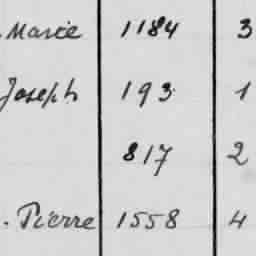 Marie 1184 3
Joseph 193 1
817 2
. Pierre 1558 4